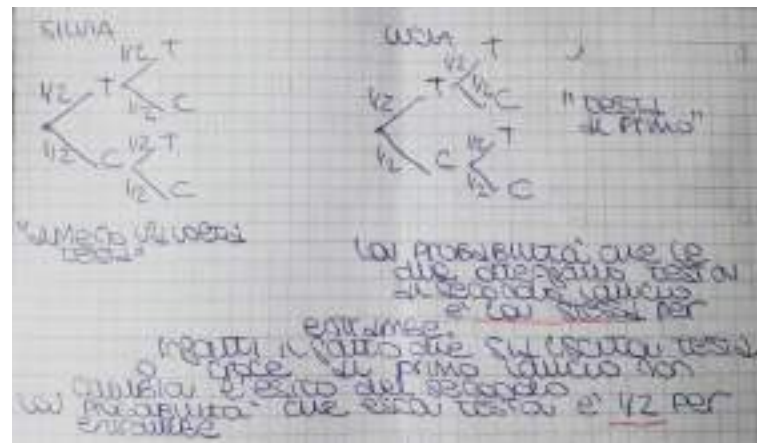 SILVIA
1/2 T
1/2 T
1/2 C
1/2 C 1/2 T
1/2 C
LUCIA
1/2 T
1/2 T
1/2 C
1/2 C 1/2 T
1/2 C
"TESTA
AL PRIMO"
"ALMENO UNA VOLTA
TESTA"
LA PROBABILITA' CHE LE
DUE OTTENGANO TESTA
AL SECONDO LANCIO
E' LA STESSA PER
ENTRAMBE.
INFATTI IL FATTO CHE SIA USCITA TESTA
O CROCE AL PRIMO LANCIO NON
CAMBIA L'ESITO DEL SECONDO
LA PROBABILITA' CHE ESCA TESTA E' 1/2 PER
ENTRAMBE